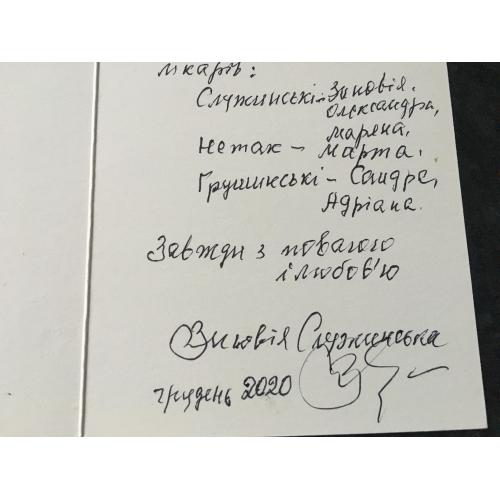 лікарів:
Служинські – Зиновія,
Олександра,
Марена,
Нетак – Марта.
Грушинські – Сандра,
Адріана.
Завжди з повагою
і любов'ю
Зиновія Служинська
грудень 2020